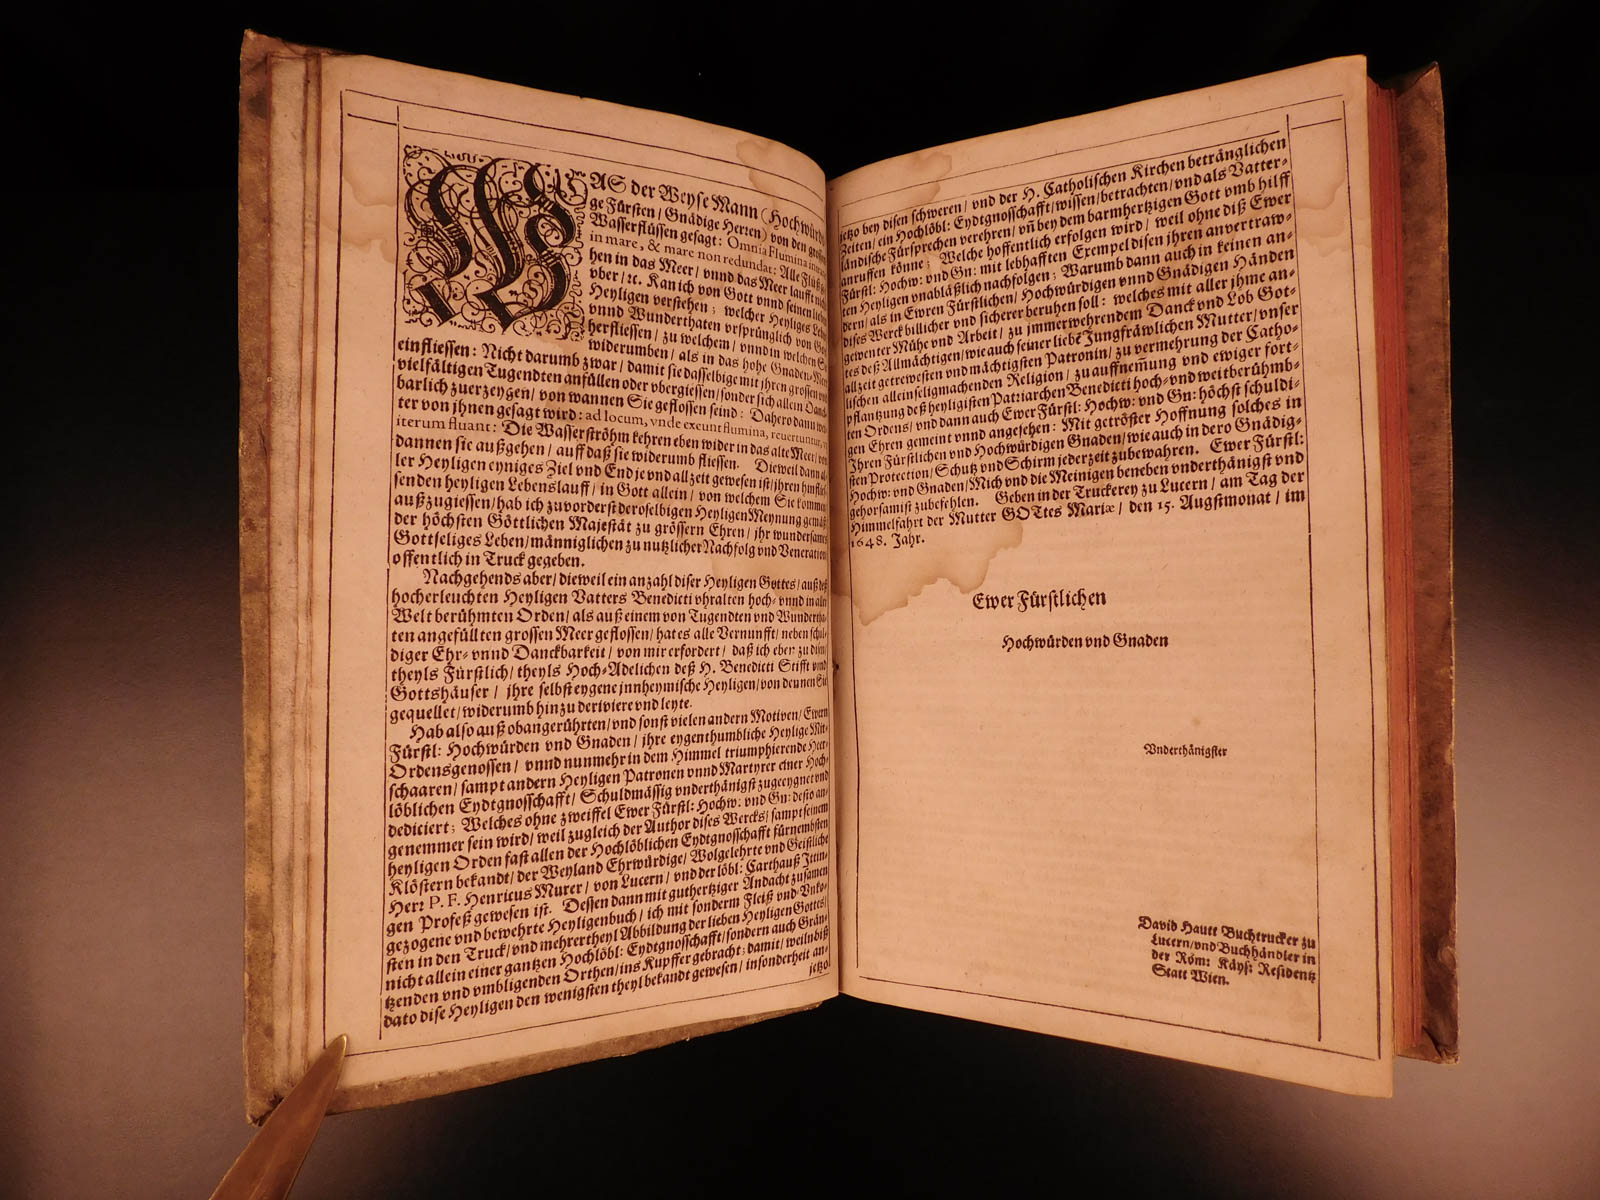 WAS der Weyse Mann (Hochwürdi-
ge Fürsten / Gnädige Herren) von den grossen
Wasserflüssen gesagt: Omnia Flumina intrant
in mare, & mare non redundat: Alle Flüß
hen in das Meer / vnnd das Meer laufft nicht
vber / ꝛc. Kan ich von Gott vnnd seinen lieben
Heyligen verstehen; welcher Heyliges Leben
vnnd Wunderthaten vrsprünglich von Gott
herfliessen / zu welchem / vnnd in welchen Sie
widerumben / als in das hohe Gnaden-Meer
einfliessen: Nicht darumb zwar / damit sie dasselbige mit jhren grossen vnd
vielfältigen Tugendten anfüllen oder vbergiessen / sonder sich allein Danck-
barlich zuerzeygen / von wannen Sie geflossen seind: Dahero dann
ter von jhnen gesagt wird: ad locum, vnde exeunt flumina, reuertuntur,
iterum fluant: Die Wasserströhm kehren eben wider in das alte Meer / von
dannen sie außgehen / auff daß sie widerumb fliessen. Dieweil dann al-
ler Heyligen eyniges Ziel vnd End je vnd allzeit gewesen ist / jhren hinflies-
senden heyligen Lebenslauff / in Gott allein / von welchem Sie kommen
außzugiessen / hab ich zuvorderst deroselbigen Heyligen Meynung gemäß
der höchsten Göttlichen Majestät zu grössern Ehren / jhr wundersames
Gottseliges Leben / männiglichen zu nutzlicher Nachfolg vnd Veneration
offentlich in Truck gegeben.
Nachgehends aber / dieweil ein anzahl diser Heyligen Gottes / auß deß
hocherleuchten Heyligen Vatters Benedicti vhralten hoch- vnnd in aller
Welt berühmten Orden / als auß einem von Tugendten vnd Wundertha-
ten angefüllten grossen Meer geflossen / hat es alle Vernunfft / neben schul-
diger Ehr- vnnd Danckbarkeit / von mir erfordert / daß ich eben zu disen
theyls Fürstlich / theyls Hoch-Adelichen deß H. Benedicti Stifft vnnd
Gottshäuser / jhre selbst eygene jnnheymische Heyligen / von deunen Sie
gequellet / widerumb hinzu deriviere vnd leyte.
Hab also auß obangerührten / vnd sonst vielen andern Motiven / Ewern
Fürstl: Hochwürden vnd Gnaden / jhre eygenthumbliche Heylige Mit-
Ordensgenossen / vnnd nunmehr in dem Himmel triumphierende Heer-
schaaren / sampt andern Heyligen Patronen vnnd Martyrer einer Hoch-
löblichen Eydtgnoßschafft / Schuldmässig vnderthänigst zugeeygnet vnd
dediciert; Welches ohne zweiffel Ewer Fürstl: Hochw: vnd Gn: desto an-
genemmer sein wird / weil zugleich der Author dises Wercks / sampt seinem
heyligen Orden fast allen der Hochlöblichen Eydtgnoßschafft fürnembsten
Klöstern bekandt / der Weyland Ehrwürdige / Wolgelehrte vnd Geistliche
Herr P. F. Henricus Murer / von Lucern / vnd der löbl: Carthauß Ittin-
gen Profeß gewesen ist. Dessen dann mit guthertziger Andacht zusamen
gezogene vnd bewehrte Heyligenbuch / ich mit sonderm Fleiß vnd Vnko-
sten in den Truck / vnd mehrertheyl Abbildung der lieben Heyligen Gottes /
nicht allein einer gantzen Hochlöbl: Eydtgnoßschafft / sondern auch Grän-
tzenden vnd vmbligenden Orthen / ins Kupffer gebracht; damit / weiln biß
dato dise Heyligen den wenigsten theyl bekandt gewesen / insonderheit an-
jetzo
jetzo bey disen schweren / vnd der H. Catholischen Kirchen betränglichen
Zeiten / ein Hochlöbl: Eydtgnoßschafft / wissen / betrachten / vnd als Vatter-
ländische Fürsprechen verehren / vñ bey dem barmhertzigen Gott vmb hilff
anruffen könne; Welche hoffentlich erfolgen wird / weil ohne diß Ewer
Fürstl: Hochw: vnd Gn: mit lebhafften Exempel disen jhren anvertraw-
ten Heyligen vnabläßlich nachfolgen; Warumb dann auch in keinen an-
dern / als in Ewren Fürstlichen / Hochwürdigen vnnd Gnädigen Händen
dises Werck billicher vnd sicherer beruhen soll: welches mit aller jhme an-
gewenter Mühe vnd Arbeit / zu jmmerwehrendem Danck vnd Lob Got-
tes deß Allmächtigen / wie auch seiner liebẽ Jungfräwlichen Mutter / vnser
allzeit getrewesten vnd mächtigsten Patronin / zu vermehrung der Catho-
lischen alleinseligmachenden Religion / zu auffnem̃ung vnd ewiger fort-
pflantzung deß heyligisten Patriarchen Benedicti hoch- vnd weitberühmb-
ten Ordens / vnd dann auch Ewer Fürstl: Hochw: vnd Gn: höchst schuldi-
gen Ehren gemeint vnnd angesehen: Mit getröster Hoffnung solches in
Jhren Fürstlichen vnd Hochwürdigen Gnaden / wie auch in dero Gnädig-
sten Protection / Schutz vnd Schirm jederzeit zubewahren. Ewer Fürstl:
Hochw: vnd Gnaden / Mich vnd die Meinigen beneben vnderthänigst vnd
gehorsamist zubefehlen. Geben in der Truckerey zu Lucern / am Tag der
Himmelfahrt der Mutter GOttes Mariæ / den 15. Augstmonat / im
1648. Jahr.
Ewer Fürstlichen
Hochwürden vnd Gnaden
Vnderthänigster
David Hautt Buchtrucker zu
Lucern / vnd Buchhändler in
der Röm: Käys: Residentz
Statt Wien.